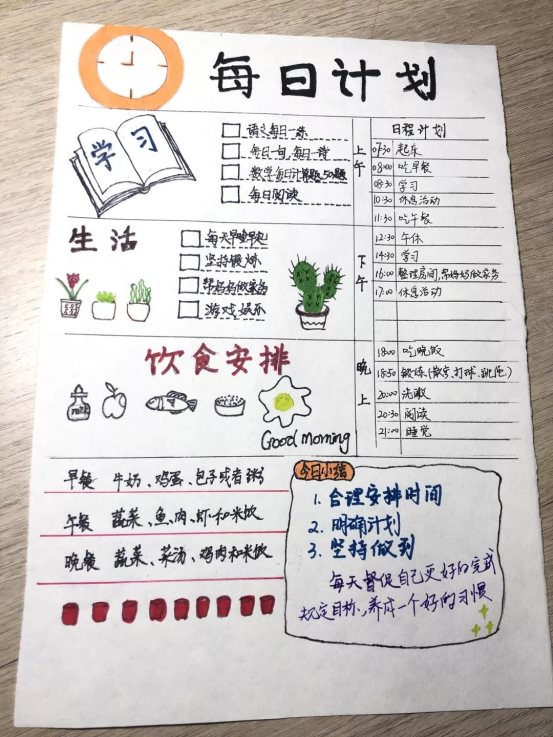 每日计划
学习
语文每日一练
每日一句,每日一诗
数学每日计算题50题
每日阅读
生活
每天早睡早起
坚持锻炼
帮妈妈做家务
游戏、娱乐
上午
下午
晚上
日程计划
07:30 起床
08:00 吃早餐
08:30 学习
10:30 休息活动
11:30 吃午餐
12:30 午休
14:30 学习
16:00 整理房间,帮妈妈做家务
17:00 休息活动
18:00 吃晚饭
18:50 锻炼(散步、打球、跳绳)
20:00 洗漱
20:30 阅读
21:00 睡觉
饮食安排
milk
Good morning
早餐 牛奶、鸡蛋、包子或者粥
午餐 蔬菜、鱼、肉、虾和米饭
晚餐 蔬菜、菜汤、鸡肉和米饭
今日小结
1. 合理安排时间
2. 明确计划
3. 坚持做到
每天督促自己更好的完成
规定目标,养成一个好的习惯